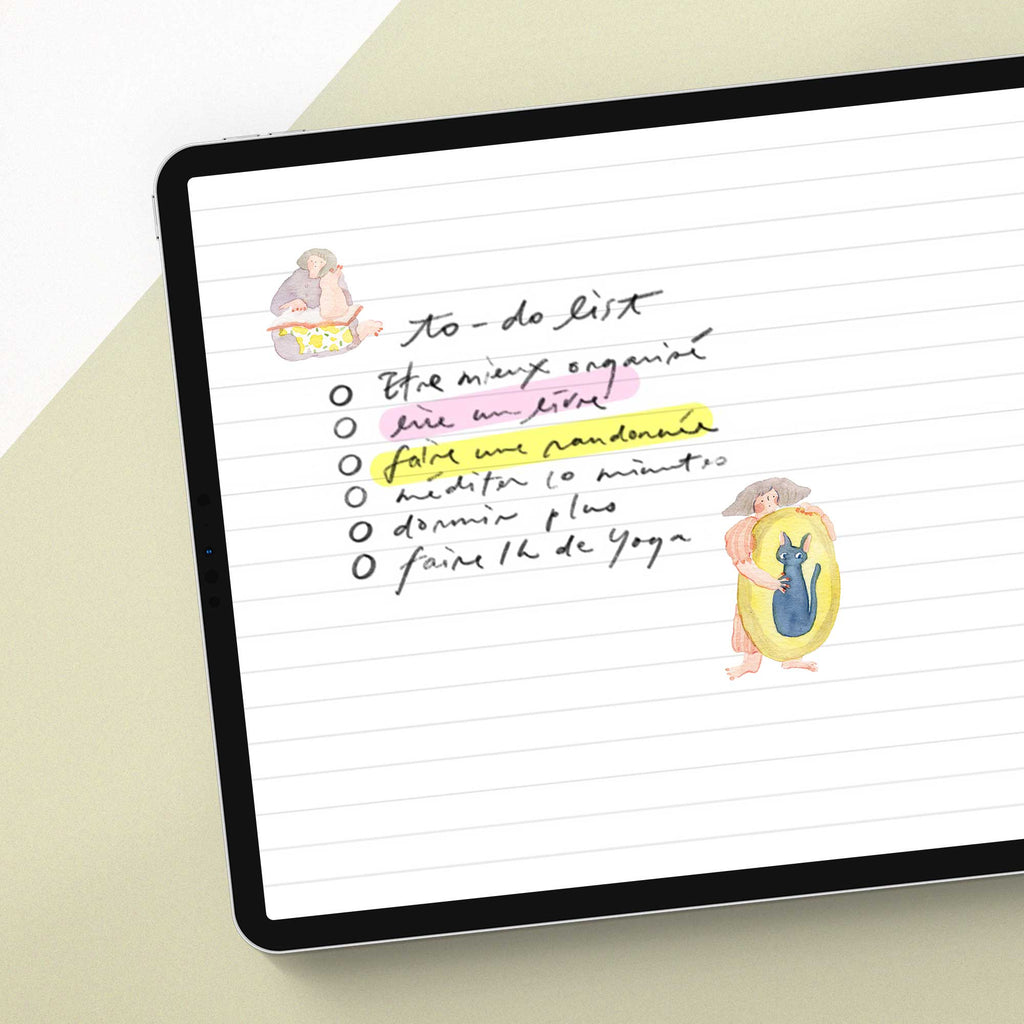 to-do list
Etre mieux organisé
lire un livre
faire une randonnée
méditer 10 minutes
dormir plus
faire 1h de Yoga